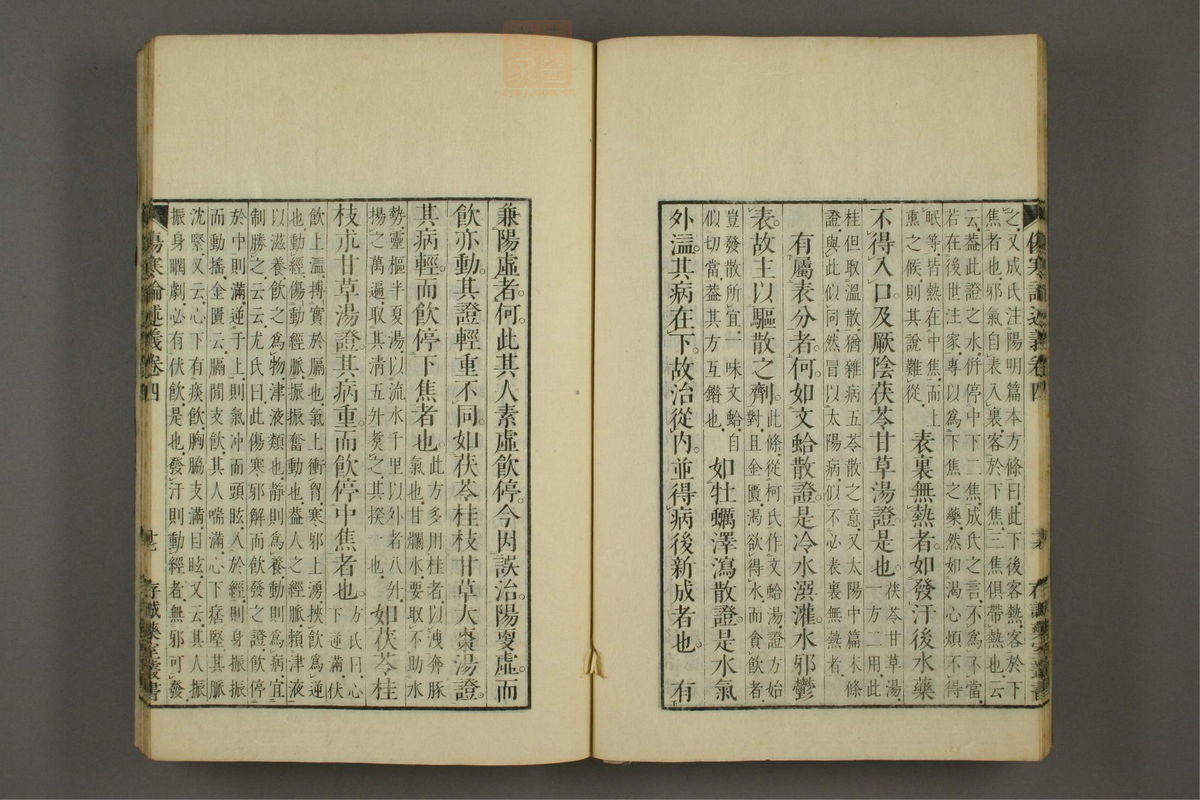 之又成氏注陽明篇本方條曰此下後客熱客於下
焦者也邪氣自表入裏客於下焦三焦俱帶熱也云
云葢此證之水併停中下二焦成氏之言不爲不當
若在後世注家專以爲下焦之藥然如渴心煩不得
眠等皆熱在中焦而上
熏之候則其說難從
表裏無熱者。如發汗後水藥
不得入口。及厥陰茯苓甘草湯證。是也。
茯苓甘草湯
一方二用此
桂但取溫散猶雜病五苓散之意又太陽中篇末條
證與此似同然冒以太陽病似不必表裏無熱者
有屬表分者。何。如文蛤散證。是冷水潠灌。水邪鬱
表。故主以驅散之劑。
此條從柯氏作文蛤湯證方始
對且金匱渴欲得水而貪飲者
豈發散所宜一味文蛤自
似切當葢其方互錯也
如牡蠣澤瀉散證。是水氣
外溢。其病在下。故治從內。並得病後新成者也。有
傷寒論述義卷四
存誠藥室叢書
兼陽虛者。何。此其人素虛飮停。今因誤治。陽更虛。而
飮亦動。其證輕重不同。如茯苓桂枝甘草大棗湯證。
其病輕。而飮停下焦者也。
此方多用桂者以洩奔豚
氣也甘爛水要取不助水
勢靈樞半夏湯以流水千里以外者八升
揚之萬遍取其淸五升煑之其揆一也
如茯苓桂
枝朮甘草湯證。其病重。而飮停中焦者也。
方氏曰心
下逆滿伏
飮上溢搏實於膈也氣上衝胷寒邪上湧挾飮爲逆
也動經傷動經脈振振奮動也葢人之經脈賴津液
以滋養飮之爲物津液類也靜則爲養動則爲病宜
制勝之云云尤氏曰此傷寒邪解而飮發之證飮停
於中則滿逆于上則氣冲而頭眩入於經則身振振
而動搖金匱云膈閒支飮其人喘滿心下痞堅其脈
沈緊又云心下有痰飮胸脇支滿目眩又云其人振
振身瞤劇必有伏飮是也發汗則動經者無邪可發
傷寒論述義卷四
存誠藥室叢書